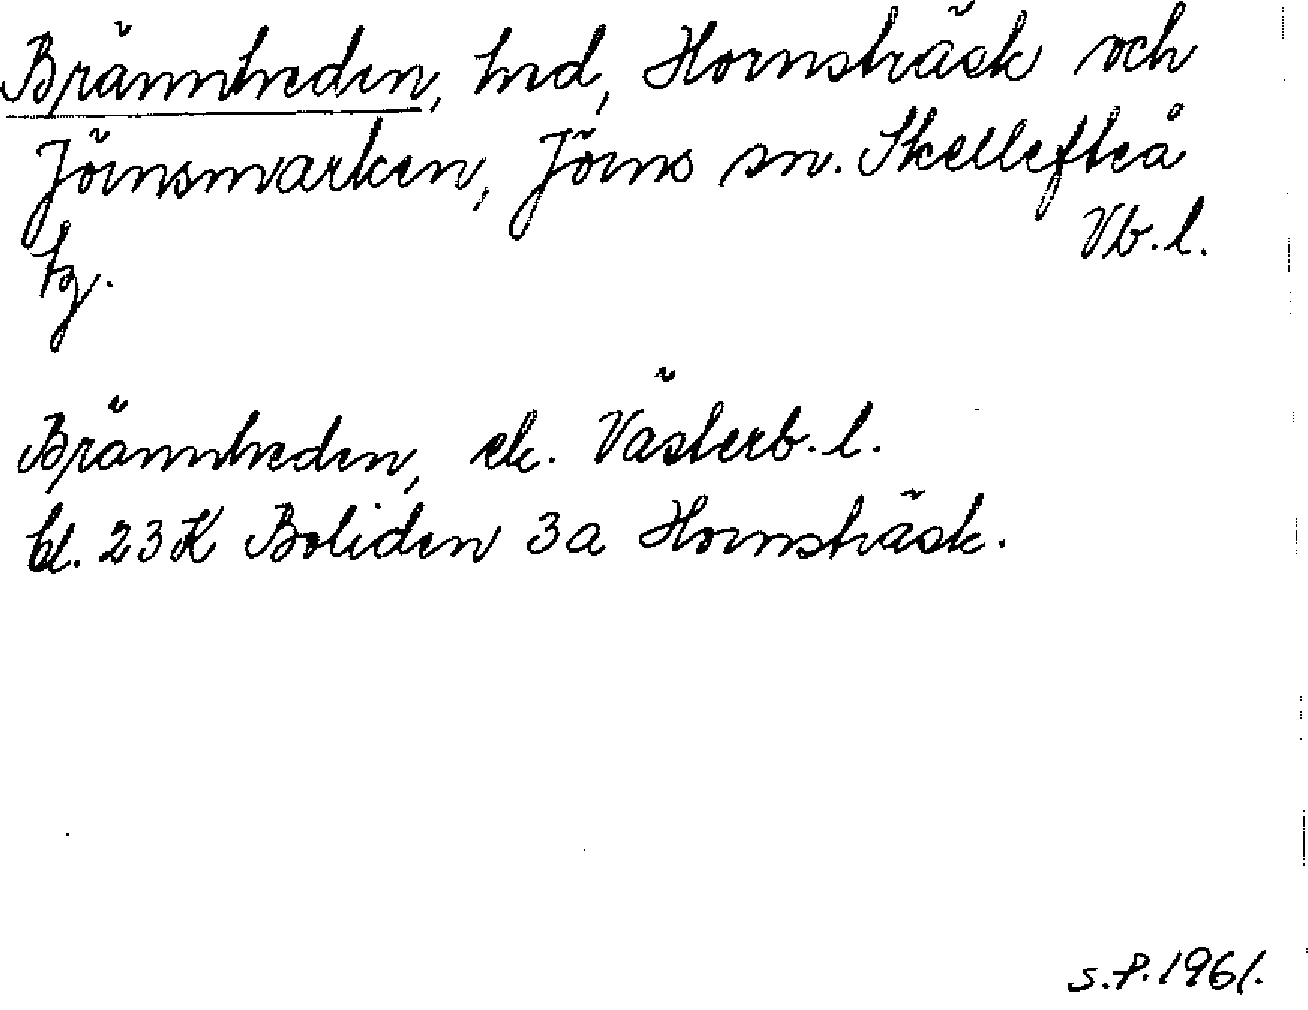 Brännheden, hed, Hornsträsk och
Jörnsmarken, Jörns sn. Skellefteå
tg. Vb. l.
Brännheden, ek. Västerb. l.
bl. 23 K Boliden 3a Hornsträsk.
S.P. 1961.